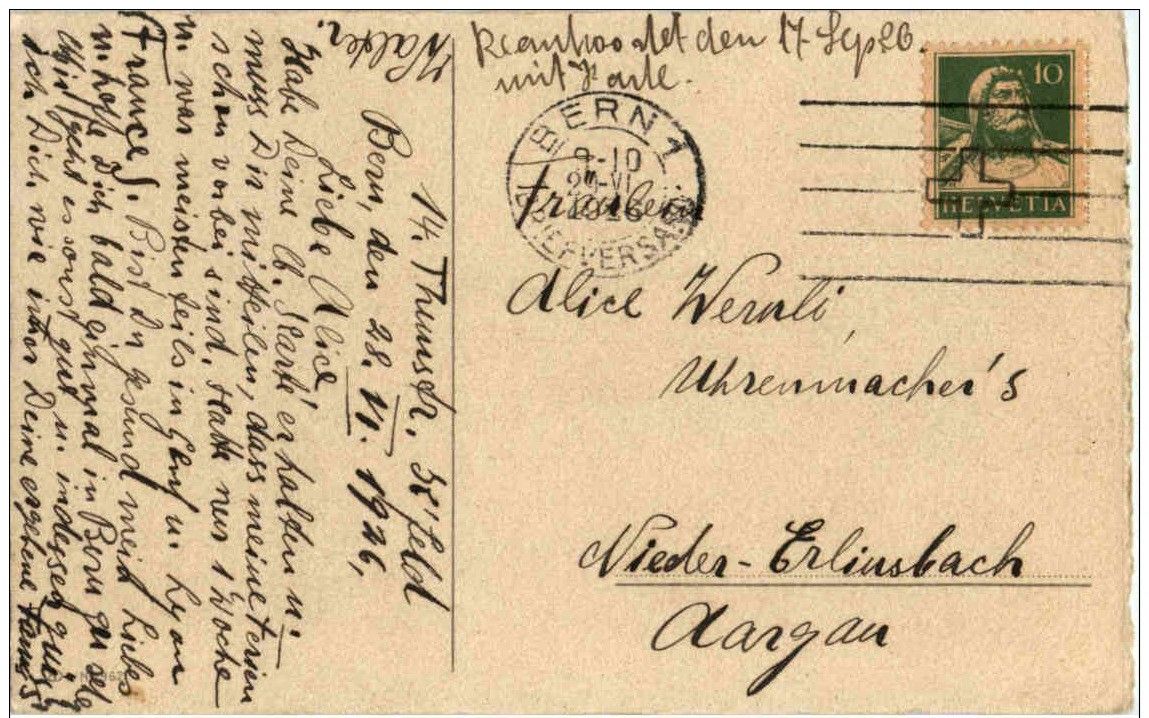 14. Thunstr. 38' feld
Bern, den 28. VI. 1926,
Liebe Alice!
Habe Deine lb. Karte erhalten u.
muss Dir mitteilen, dass meine Ferien
schon vorbei sind. Hatte nur 1 Woche
u. war meistenteils in Genf u. Lyon
(France). Bist Du gesund mein Liebes
u. hoffe Dich bald einmal in Bern zu seh
Mir geht es sonst gut u. indessen grüsst
Dich, wie immer Deine ergebene
Walter.
Beantwortet den 17. Sep 26.
mit Karte.
BERN 1
9-10
VI
26
BRIEFVERSAND
10
HELVETIA
Fräulein
Alice Wernli,
Uhrenmacher's
Nieder-Erlinsbach
Aargau